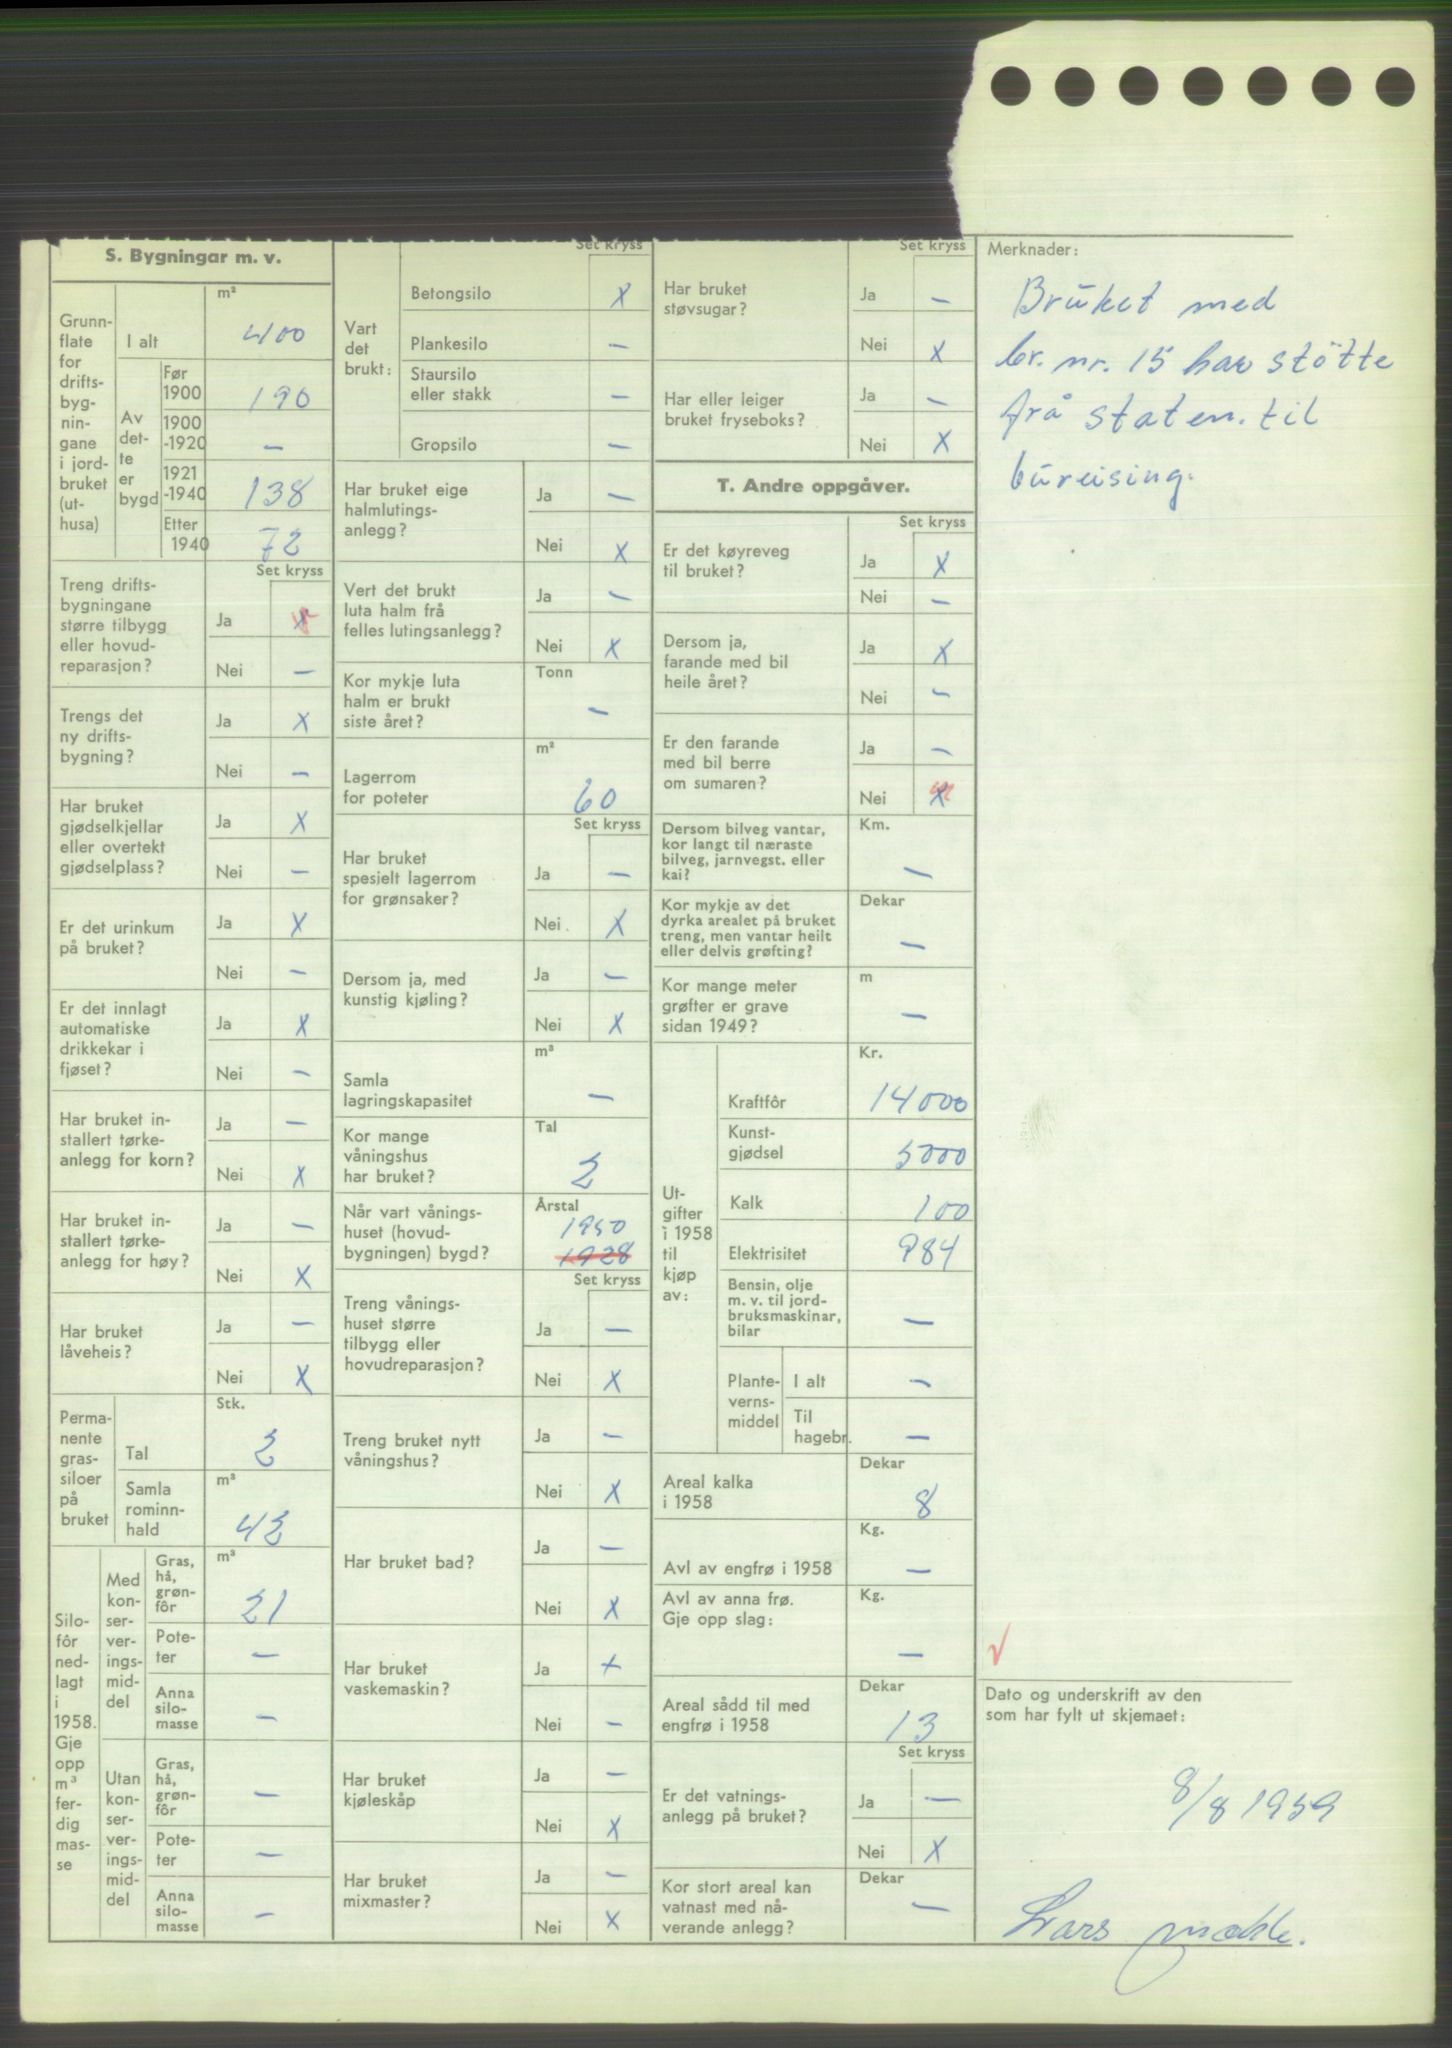 S. Bygningar m. v.
Grunn-
flate
for
drifts-
byg-
nin-
gane
i jord-
bruket
(ut-
husa)
m²
I alt 400
Av
det-
te
er
bygd
Før
1900 190
1900
-1920 —
1921
-1940 138
Etter
1940 72
Set kryss
Treng drifts-
bygningane
større tilbygg
eller hovud-
reparasjon?
Ja x
Nei —
Trengs det
ny drifts-
bygning?
Ja x
Nei —
Har bruket
gjødselkjellar
eller overtekt
gjødselplass?
Ja x
Nei —
Er det urinkum
på bruket?
Ja x
Nei —
Er det innlagt
automatiske
drikkekar i
fjøset?
Ja x
Nei —
Har bruket in-
stallert tørke-
anlegg for korn?
Ja —
Nei x
Har bruket in-
stallert tørke-
anlegg for høy?
Ja —
Nei x
Har bruket
låveheis?
Ja —
Nei x
Perma-
nente
gras-
siloer
på
bruket
Stk.
Tal 2
m³
Samla
rominn-
hald 42
Silo-
fôr
ned-
lagt
i
1958.
Gje
opp
m³
fer-
dig
mas-
se
Med
kon-
ser-
ver-
ings-
mid-
del
m³
Gras,
hå,
grøn-
fôr 21
Pote-
ter —
Anna
silo-
masse —
Utan
kon-
ser-
ver-
ings-
mid-
del
Gras,
hå,
grøn-
fôr —
Pote-
ter —
Anna
silo-
masse —
Set kryss
Vart
det
brukt:
Betongsilo x
Plankesilo —
Staursilo
eller stakk —
Gropsilo —
Har bruket eige
halmlutings-
anlegg?
Ja —
Nei x
Vert det brukt
luta halm frå
felles lutingsanlegg?
Ja —
Nei x
Kor mykje luta
halm er brukt
siste året?
Tonn
—
Lagerrom
for poteter
m²
60
Set kryss
Har bruket
spesjelt lagerrom
for grønsaker?
Ja —
Nei. x
Dersom ja, med
kunstig kjøling?
Ja —
Nei x
Samla
lagringskapasitet
m³
—
Kor mange
våningshus
har bruket?
Tal
2
Når vart vånings-
huset (hovud-
bygningen) bygd?
Årstal
1950
1928
Set kryss
Treng vånings-
huset større
tilbygg eller
hovudreparasjon?
Ja —
Nei x
Treng bruket nytt
våningshus?
Ja —
Nei x
Har bruket bad?
Ja —
Nei x
Har bruket
vaskemaskin?
Ja +
Nei —
Har bruket
kjøleskåp
Ja —
Nei x
Har bruket
mixmaster?
Ja —
Nei x
Set kryss
Har bruket
støvsugar?
Ja —
Nei x
Har eller leiger
bruket fryseboks?
Ja —
Nei x
T. Andre oppgåver.
Set kryss
Er det køyreveg
til bruket?
Ja x
Nei —
Dersom ja,
farande med bil
heile året?
Ja x
Nei —
Er den farande
med bil berre
om sumaren?
Ja —
Nei x
Dersom bilveg vantar,
kor langt til næraste
bilveg, jarnvegst. eller
kai?
Km.
—
Kor mykje av det
dyrka arealet på bruket
treng, men vantar heilt
eller delvis grøfting?
Dekar
—
Kor mange meter
grøfter er grave
sidan 1949?
m
—
Ut-
gifter
i 1958
til
kjøp
av:
Kr.
Kraftfôr 14000
Kunst-
gjødsel 5000
Kalk 100
Elektrisitet 984
Bensin, olje
m. v. til jord-
bruksmaskinar,
bilar —
Plante-
verns-
middel
I alt —
Til
hagebr. —
Areal kalka
i 1958
Dekar
8
Avl av engfrø i 1958
Kg.
—
Avl av anna frø.
Gje opp slag:
Kg.
—
Areal sådd til med
engfrø i 1958
Dekar
13
Set kryss
Er det vatnings-
anlegg på bruket?
Ja —
Nei x
Kor stort areal kan
vatnast med nå-
verande anlegg?
Dekar
—
Merknader:
Bruket med
br. nr. 15 har støtte
frå staten. til
bureising.
√
Dato og underskrift av den
som har fylt ut skjemaet:
8/8 1959
Lars Mæhle.